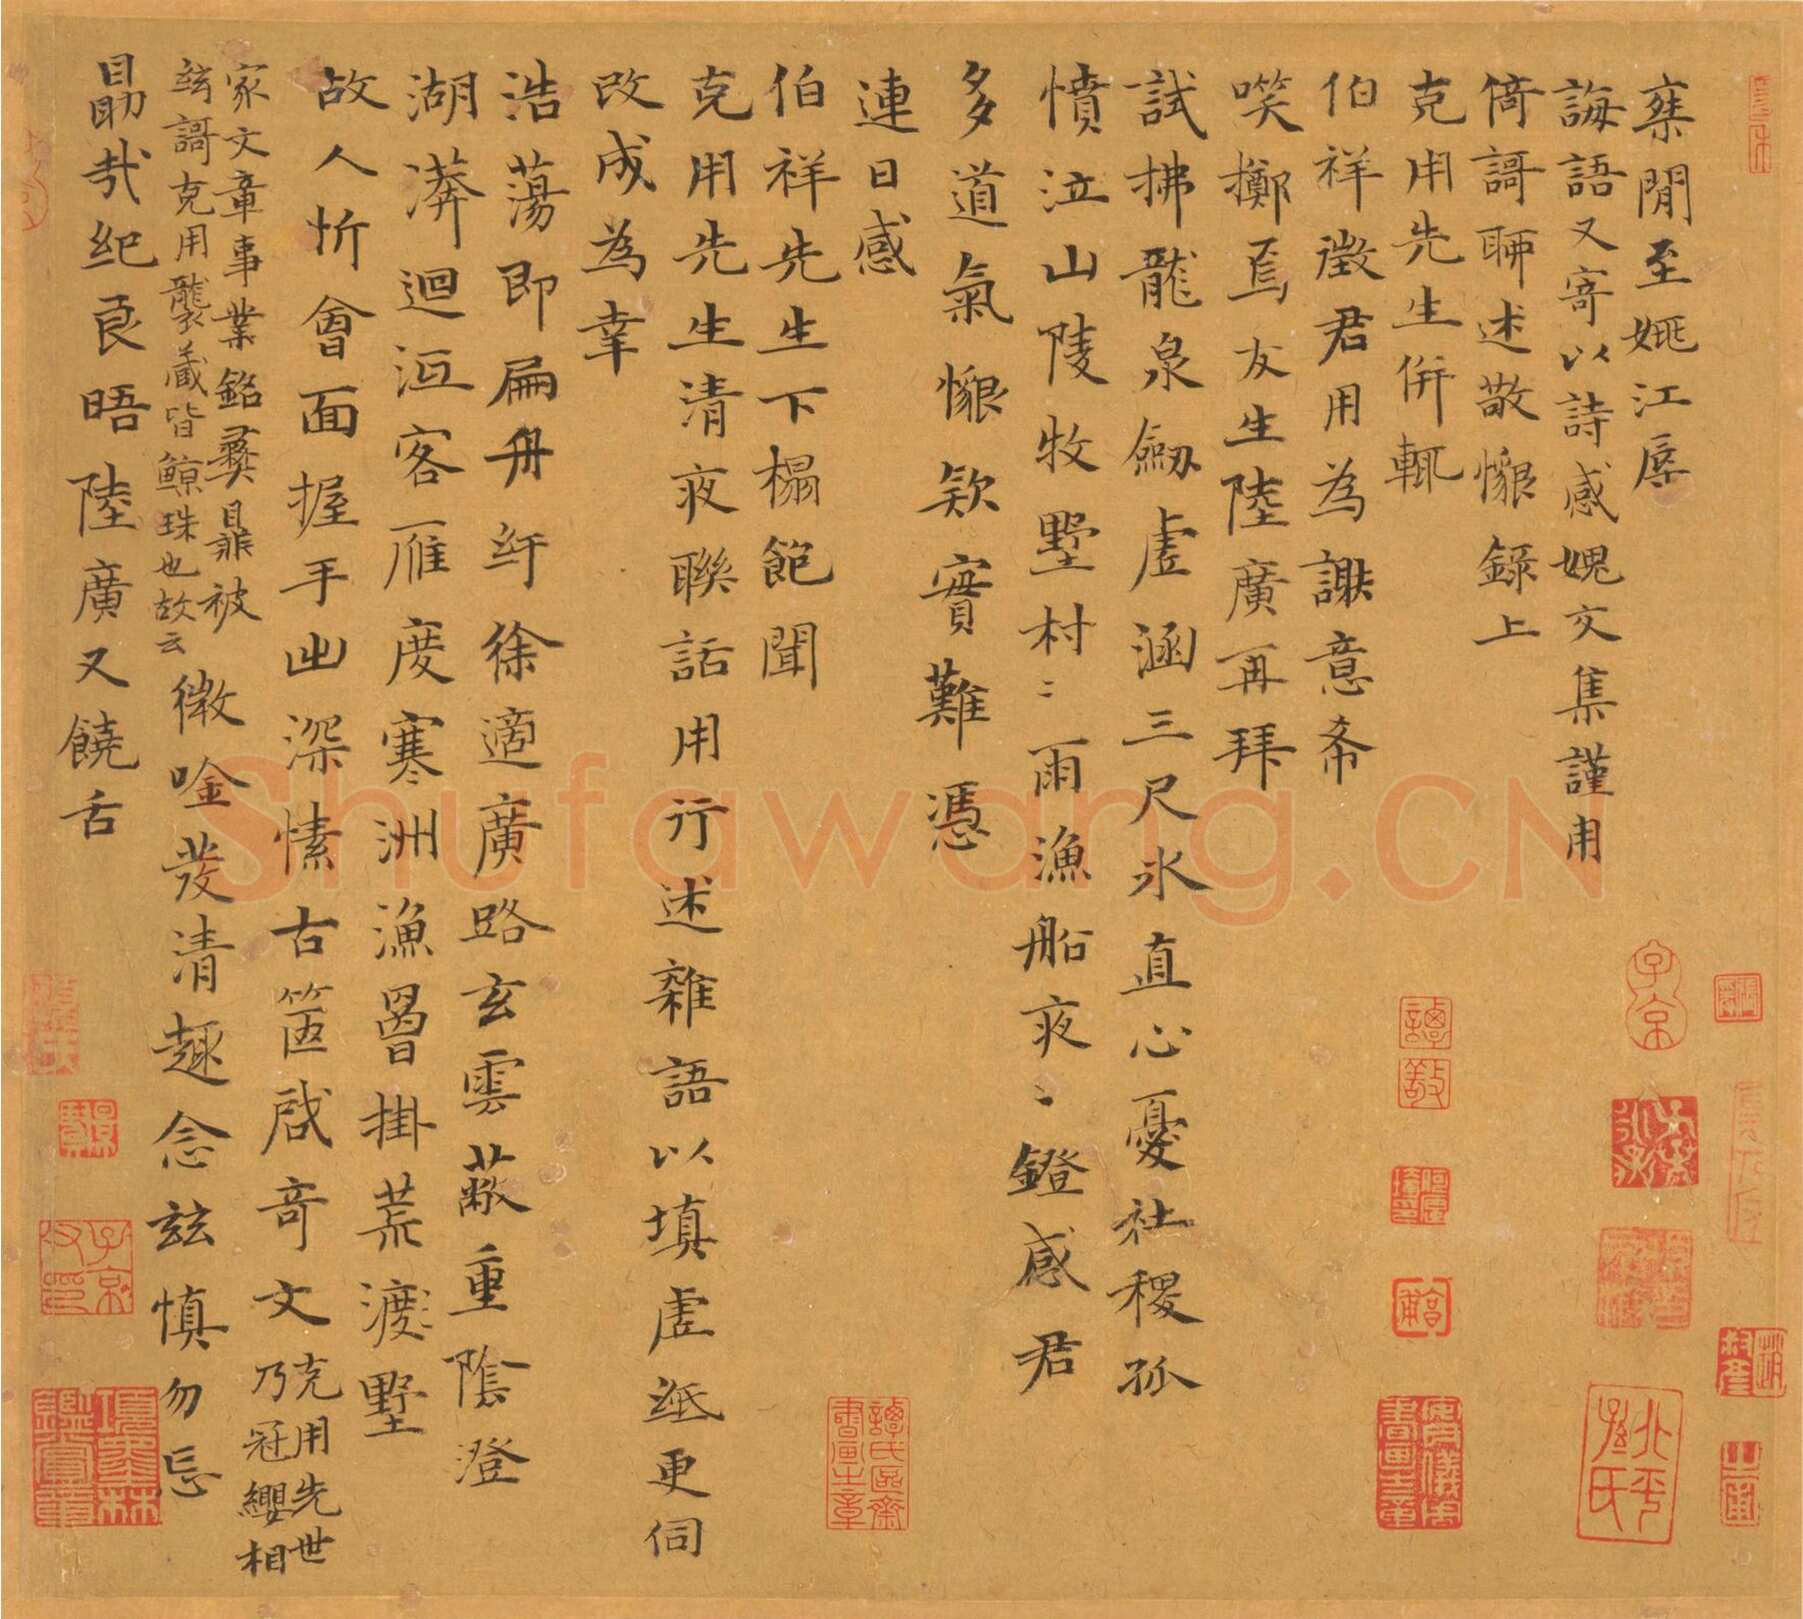 棄閒至姚江辱
誨語又寄以詩感媿交集謹用
倚謌聊述敬懷錄上
克用先生併輒
伯祥徵君用為謝意希
唉擲焉友生陸廣再拜
試拂龍泉劒虛涵三尺氷直心憂社稷孤
憤泣山陵牧墅村〻雨漁船夜〻鐙感君
多道氣懷欵實難憑
連日感
伯祥先生下榻飽聞
克用先生清夜聯話用行述雜語以填虛紙更伺
改成為幸
浩蕩即扁舟紆徐適廣路玄雲蔽重陰澄
湖漭迴沍客雁度寒洲漁罾掛荒渡墅
故人忻會面握手出深愫古篋啟奇文克用先世乃冠纓相
家文章事業銘彝鼎被
兹謌克用襲藏皆鯨珠也故云
微唫發清趣念兹慎勿忘
勗哉紀良晤陸廣又饒舌
Shufawang.CN